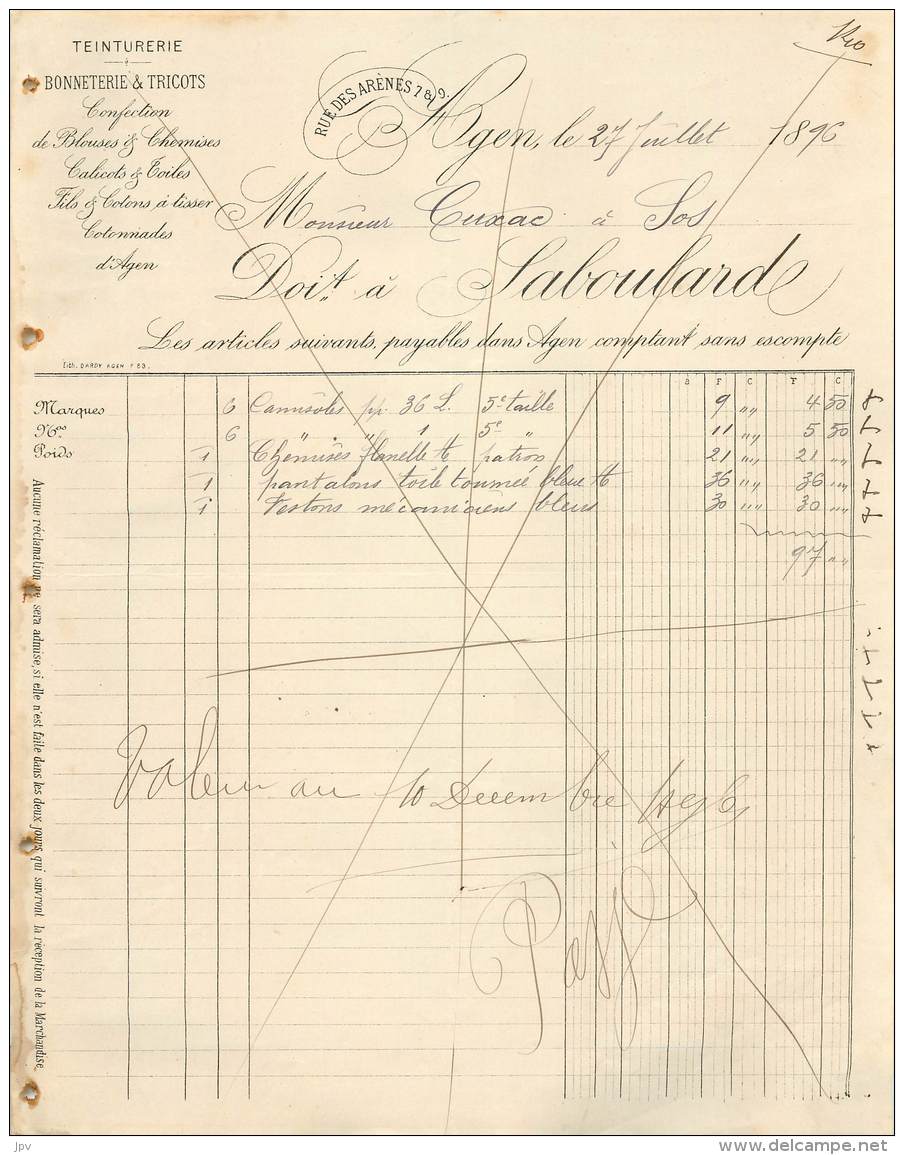 TEINTURERIE
BONNETERIE & TRICOTS
Confection
de Blouses & Chemises
Calicots & Toiles
Fils & Cotons à tisser
Cotonnades
d'Agen
RUE DES ARÈNES 7 & 9.
Agen, le 27 Juillet 1896
Monsieur Cuxac à Sos
Doit à Saboulard
Les articles suivants, payables dans Agen comptant sans escompte
Lith. DARDY AGEN
F C F C
Marques 6 Camisoles pp. 36 L. 5e taille 9 "" 4 50
Nos 6 " " 1 5e " 11 "" 5 50
Poids 1 Chemises flanelle patron 21 "" 21 ""
1 pantalons toile bleue 36 "" 36 ""
1 Vestons mécaniciens bleus 30 "" 30 ""
97 ""
Valeur au 10 Decembre
Aucune réclamation ne sera admise, si elle n'est faite dans les deux jours qui suivront la réception de la Marchandise.
jpv
www.delcampe.net